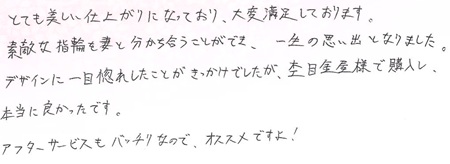 とても美しい仕上がりになっており、大変満足しております。
素敵な指輪を妻と分かち合うことができ、一生の思い出となりました。
デザインに一目惚れしたことがきっかけでしたが、杢目金屋様で購入し、
本当に良かったです。
アフターサービスもバッチリなので、オススメですよ!